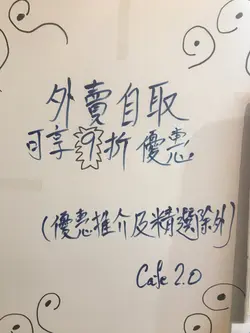 外賣自取
可享9折優惠
(優惠推介及精選除外)
Cafe 2.0